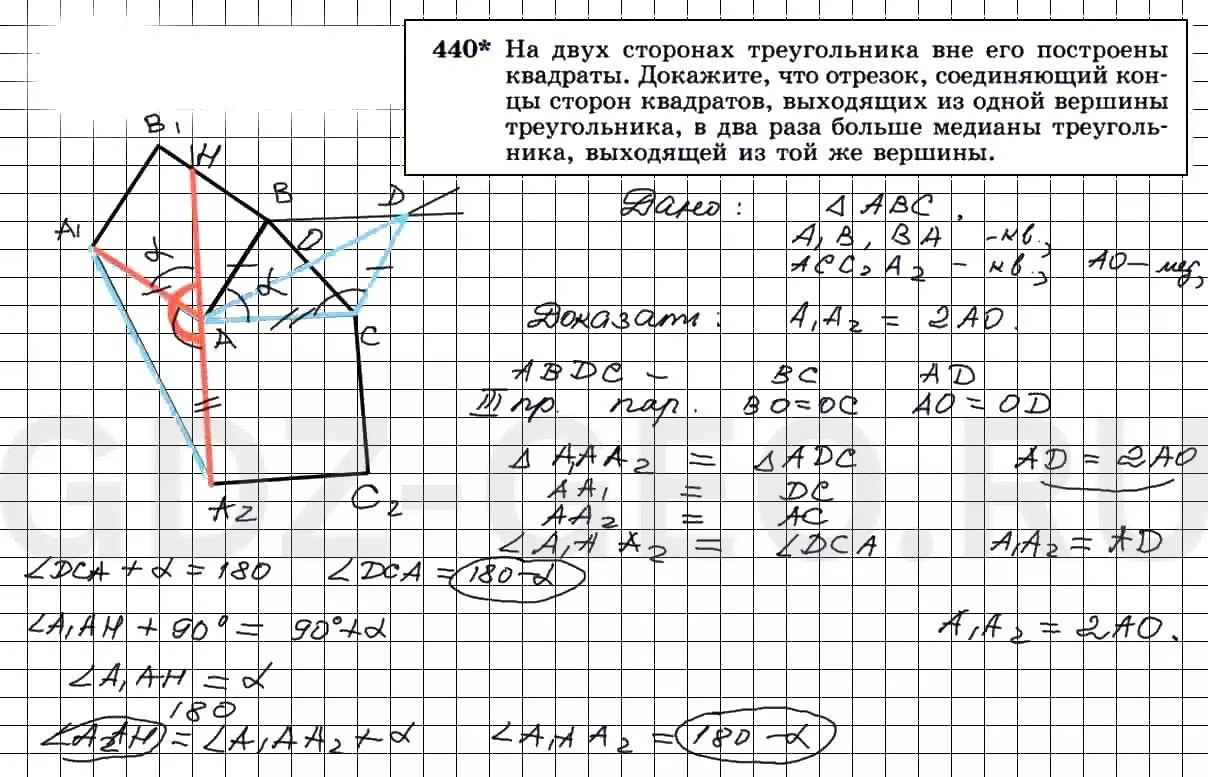 440* На двух сторонах треугольника вне его построены
квадраты. Докажите, что отрезок, соединяющий кон-
цы сторон квадратов, выходящих из одной вершины
треугольника, в два раза больше медианы треуголь-
ника, выходящей из той же вершины.
B1
H
B
D
A1
α
O
α
A
C
A2
C2
Дано: Δ ABC,
A1B1BA - кв.,
ACC2A2 - кв., AO - мед,
Доказать: A1A2 = 2AO.
ABDC - BC AD
III пр. пар. BO=OC AO=OD
Δ A1AA2 = Δ ADC AD = 2AO
AA1 = DC
AA2 = AC
∠A1AA2 = ∠DCA A1A2 = AD
∠DCA + α = 180 ∠DCA = 180-α
∠A1AH + 90° = 90°+α A1A2 = 2AO.
∠A1AH = α
180
∠A2AH = ∠A1AA2 + α ∠A1AA2 = 180-α
GDZ-GEO.RU